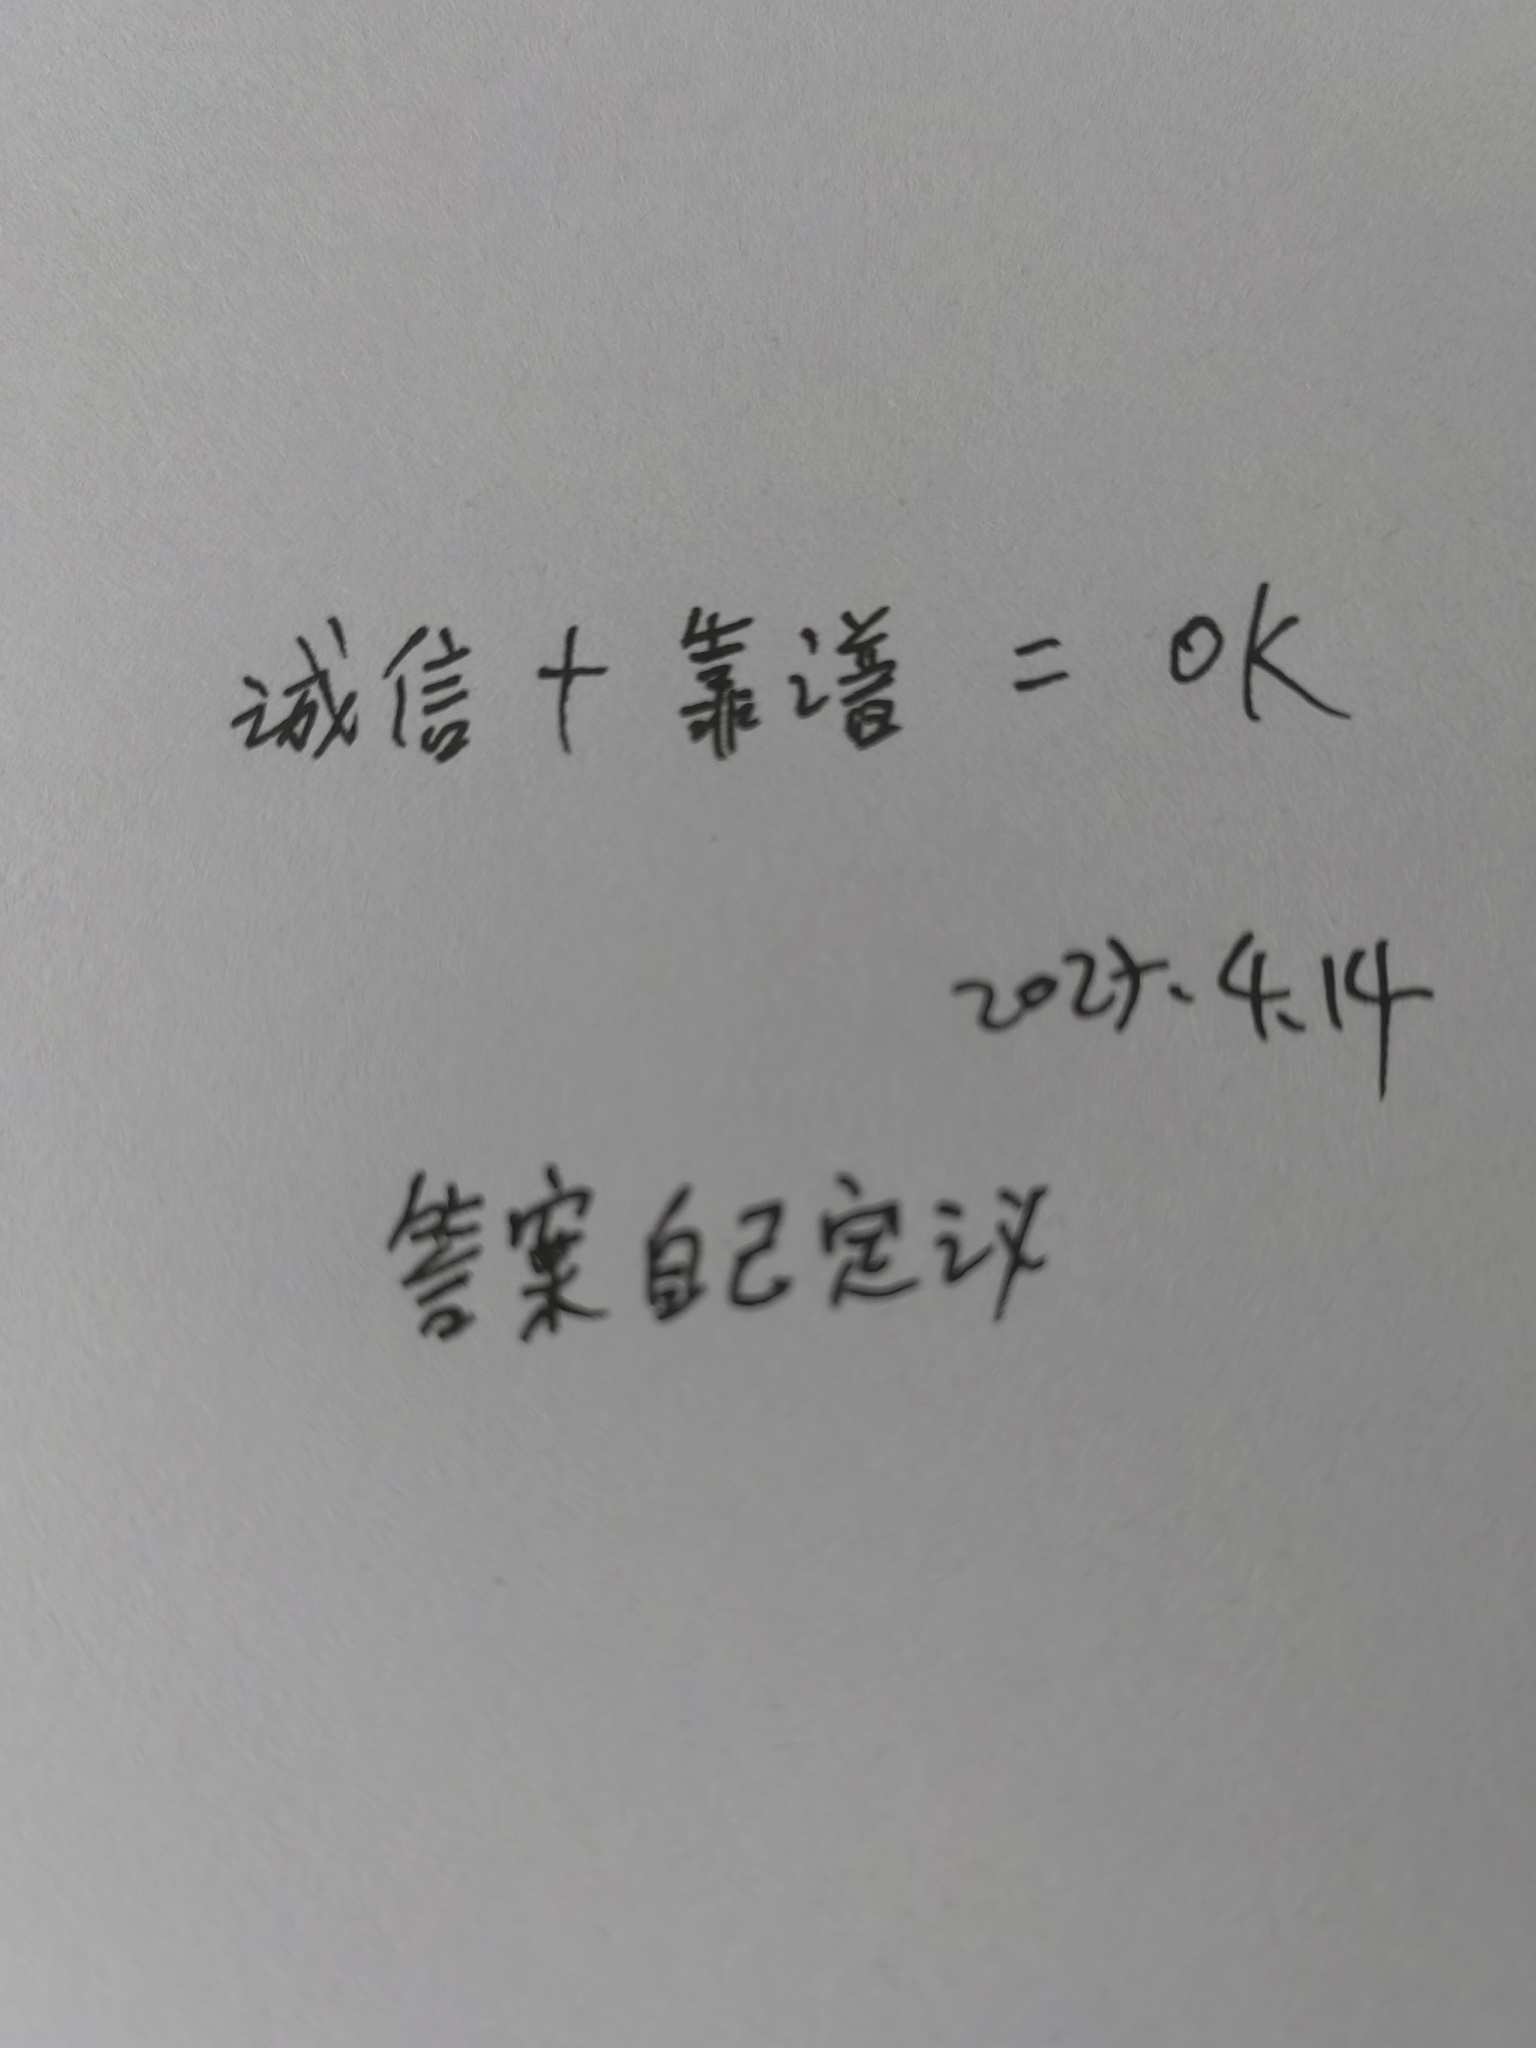 诚信+靠谱=OK
2025.4.14
答案自己定议